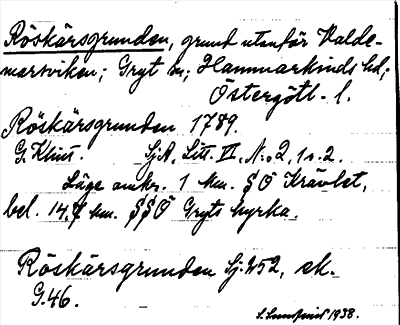 Röskärsgrunden, grund utanför Valde-
marsviken; Gryt sn; Hammarkinds hd;
Östergötl. l.
Röskärsgrunden 1789.
G. Klint. Sj.A. Litt. VI, N:o 2, 1 o. 2.
Läge omkr. 1 km. SÖ Krävlet,
bel. 14,7 km. SSÖ Gryts kyrka.
Röskärsgrunden Sj. 252, ek.
G.46.
1938.